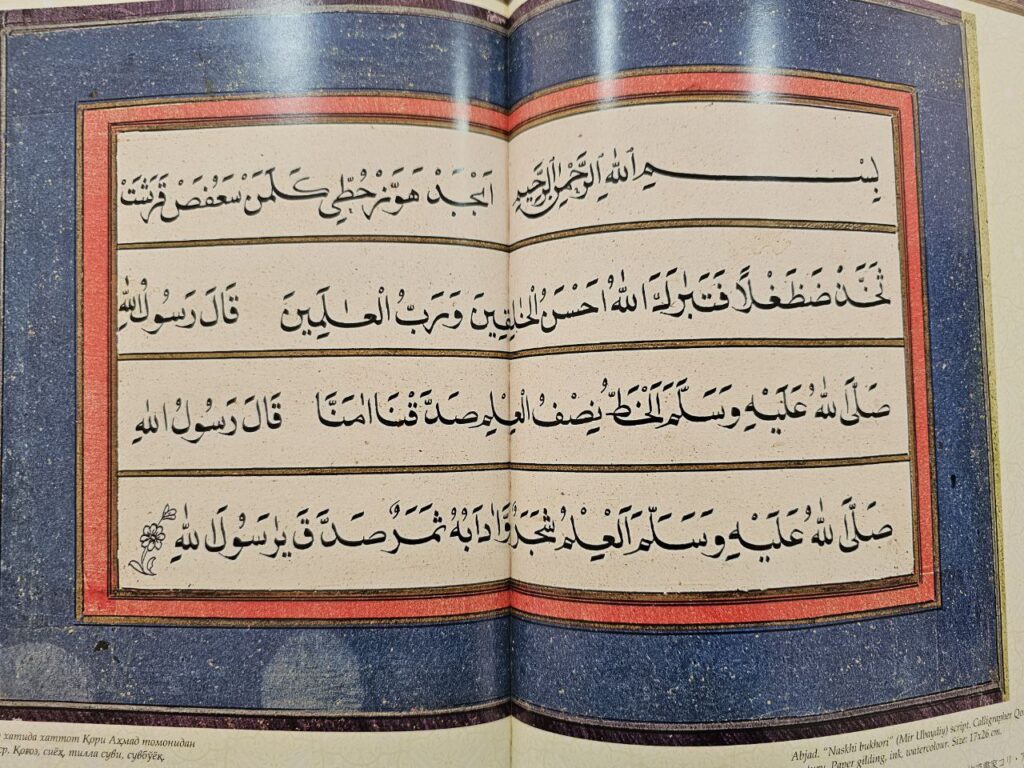 بِسْـــمِ اللهِ الرَّحْمٰنِ الرَّحِيمِ اَبْجَدْ هَوَّزْ حُطِّى كَلَمَنْ سَعْفَصْ قَرَشَتْ
ثَخَّذْ ضَظَغْلًا فَتَبٰرَكَ اللهُ اَحْسَنُ الْخٰلِقِينَ وَرَبُّ الْعٰلَمِينَ قَالَ رَسُولُ اللهِ
صَلَّى اللهُ عَلَيْهِ وَسَلَّمَ اَلْخَطُّ نِصْفُ الْعِلْمِ صَدَّقْنَا اٰمَنَّا قَالَ رَسُولُ اللهِ
صَلَّى اللهُ عَلَيْهِ وَسَلَّمَ اَلْعِلْمُ شَجَرٌ وَّاٰدَابُهُ ثَمَرٌ صَدَّقَ يٰرَسُولَ اللهِ
хатида хаттот Қори Аҳмад томонидан
Қоғоз, сиёҳ, тилла суви, сувбўёқ.
Abjad. "Naskhi bukhori" (Mir Ubaydiy) script. Calligrapher
Paper gilding, ink, watercolour. Size: 17x26 cm.